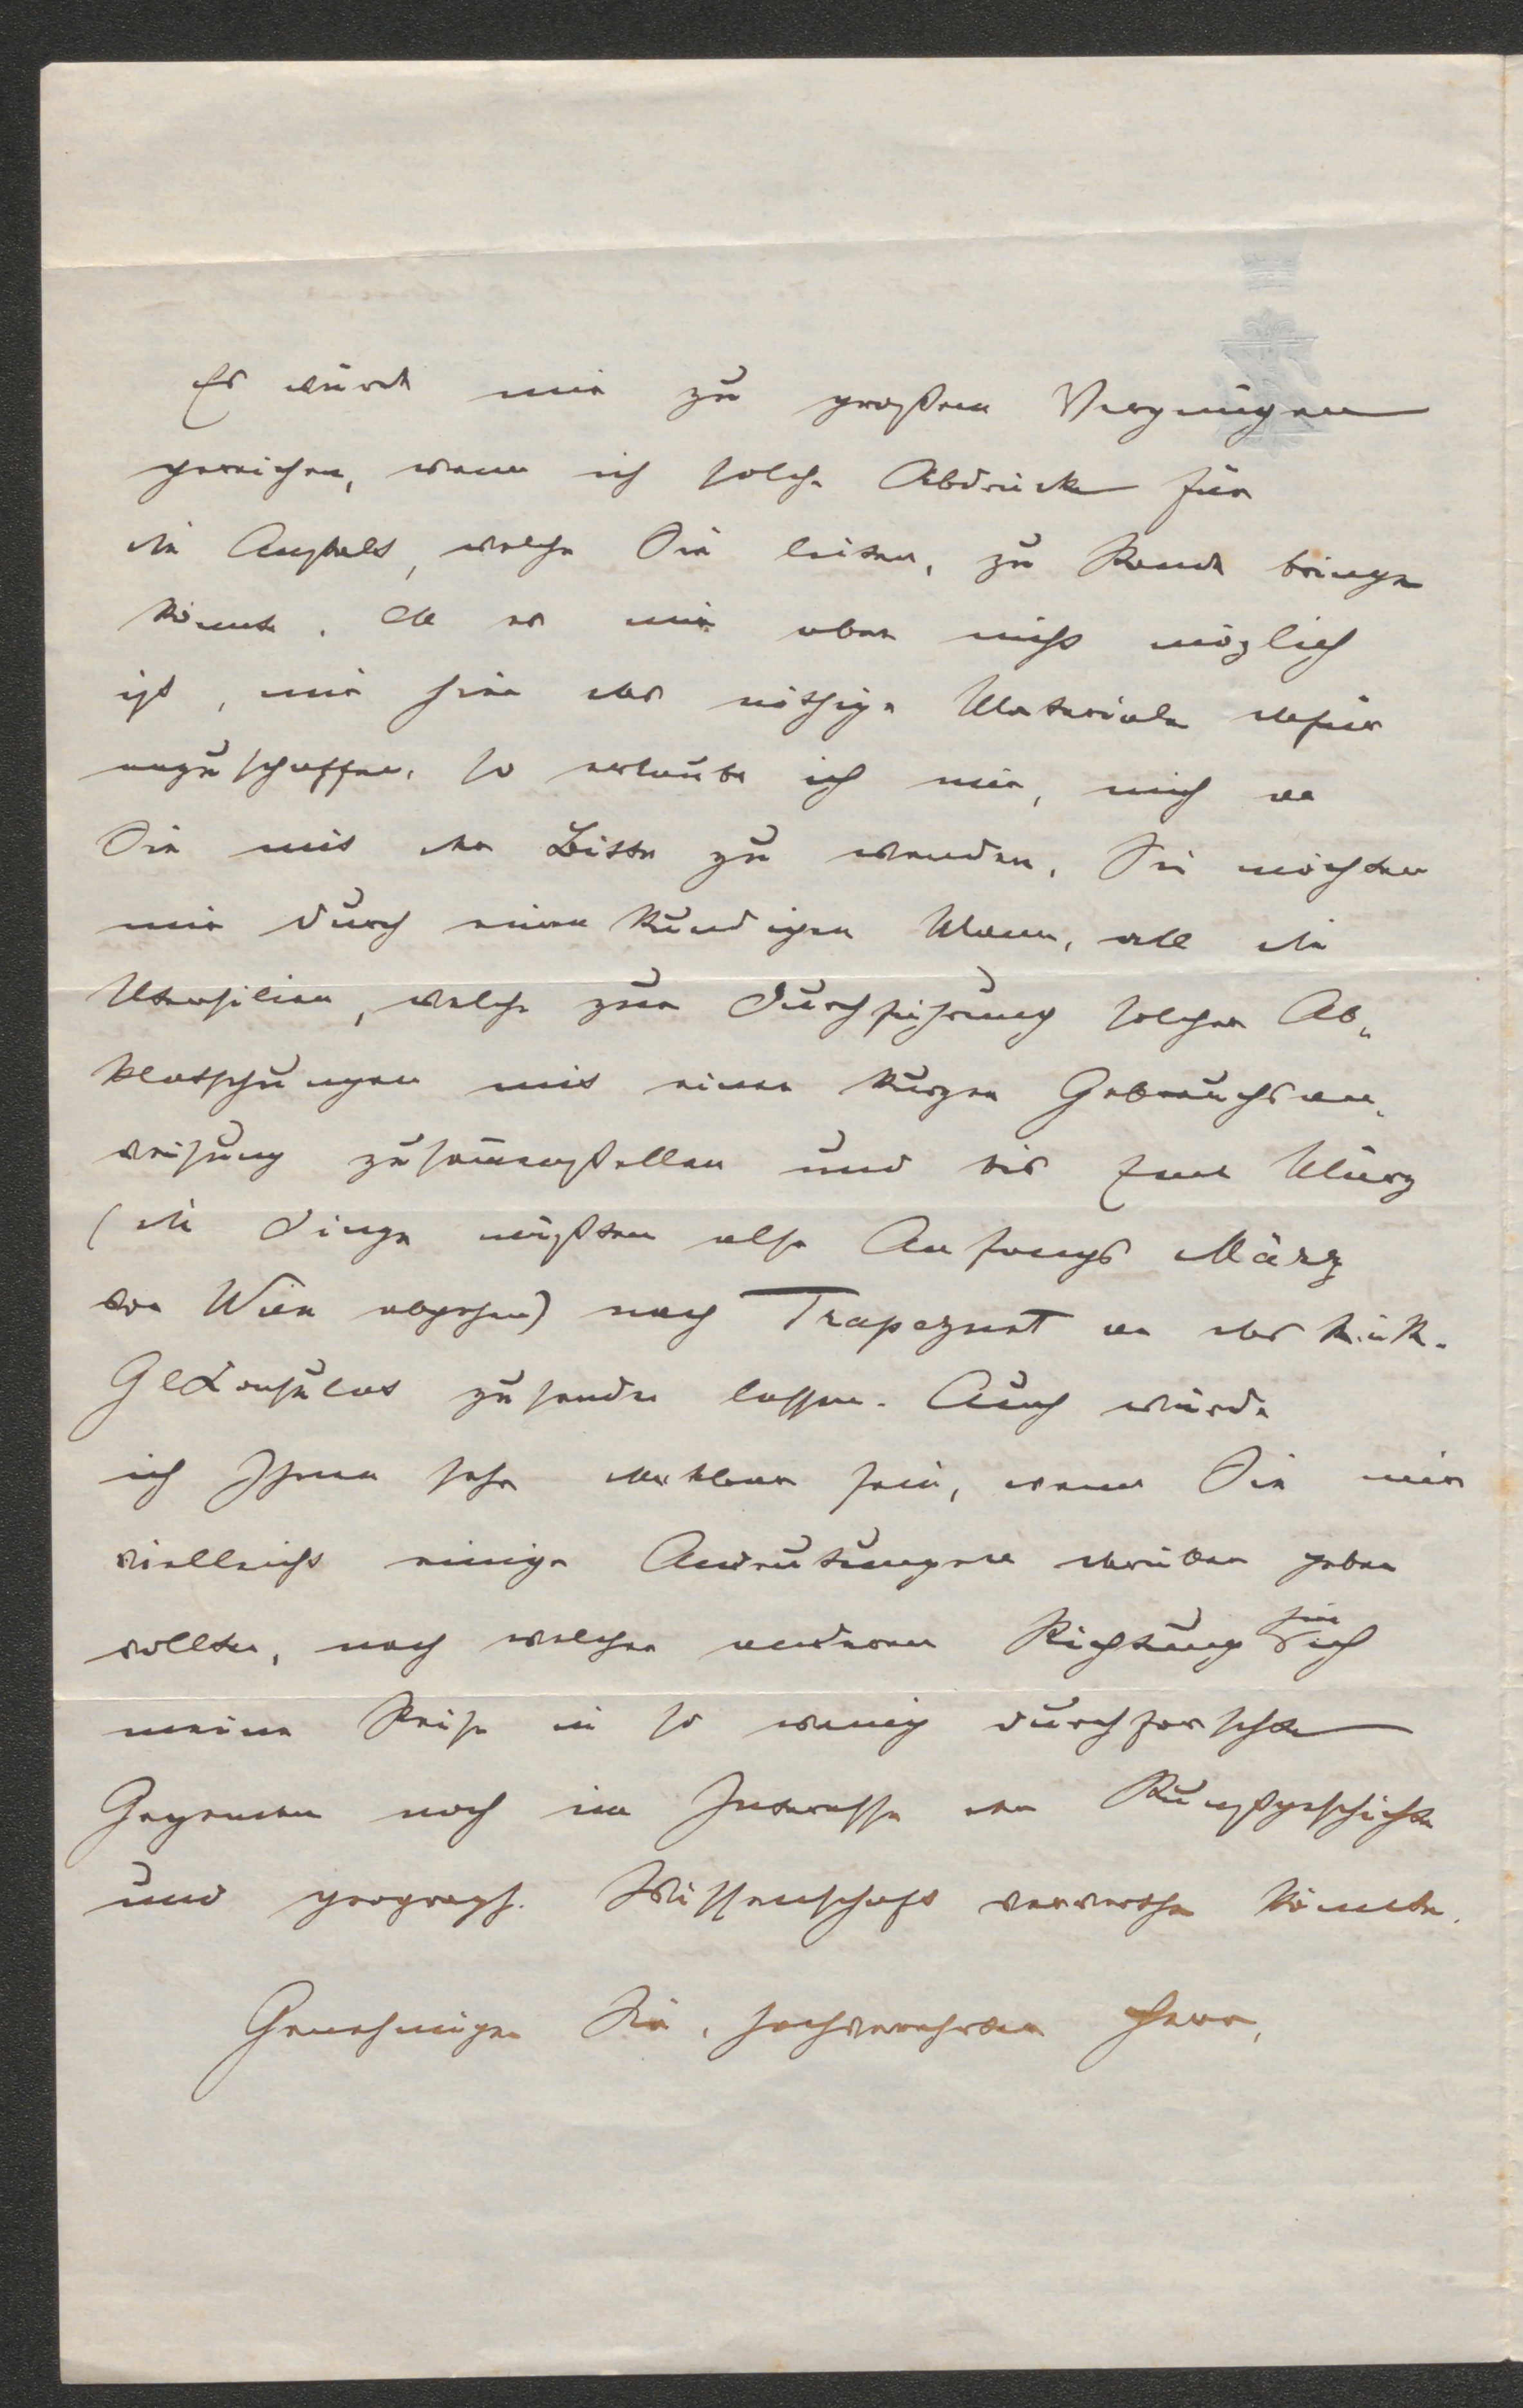 Es würde mir zu großem Vergnügen
gereichen, wenn ich solche Abdrücke für
die Anstalt, welche Sie leiten, zu Stande bringen
könnte. Da es mir aber nicht möglich
ist, mir hier das nöthige Materiale dafür
anzuschaffen, so erlaube ich mir, mich an
Sie mit der Bitte zu wenden, Sie möchten
mir durch einen kundigen Mann, all die
Utensilien, welche zur Durchführung solcher Ab„
klatschungen mit einer kurzen Gebrauchsan„
weisung zusam̅enstellen und bis Ende März
(die Dinge müßten also Anfangs März
von Wien abgehen) nach Trapezunt an das k. u. k.
GlConsulat zusenden lassen. Auch würde
ich Ihnen sehr dankbar sein, wenn Sie mir
vielleicht einige Andeutungen darüber geben
wollten, nach welcher anderen Richtung hin ich
meine Reise in so wenig durchforschte
Gegenden noch im Interesse der Kunstgeschichte
und geograph. Wissenschaft verwerthen könnte.
Genehmigen Sie, hochverehrter Herr,